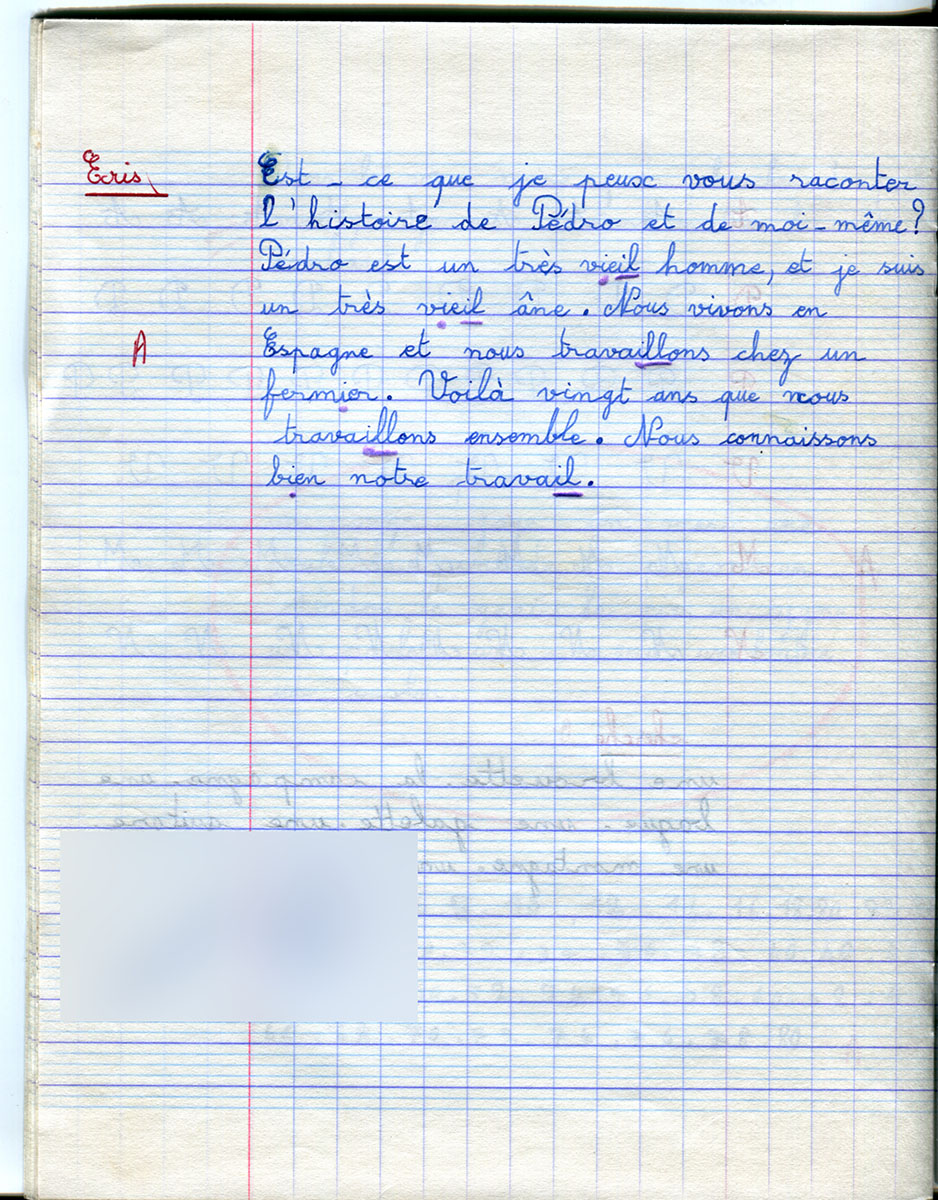 Ecris
Est-ce que je peux vous raconter
l'histoire de Pédro et de moi-même?
Pédro est un très vieil homme, et je suis
un très vieil âne. Nous vivons en
A
Espagne et nous travaillons chez un
fermier. Voilà vingt ans que nous
travaillons ensemble. Nous connaissons
bien notre travail.